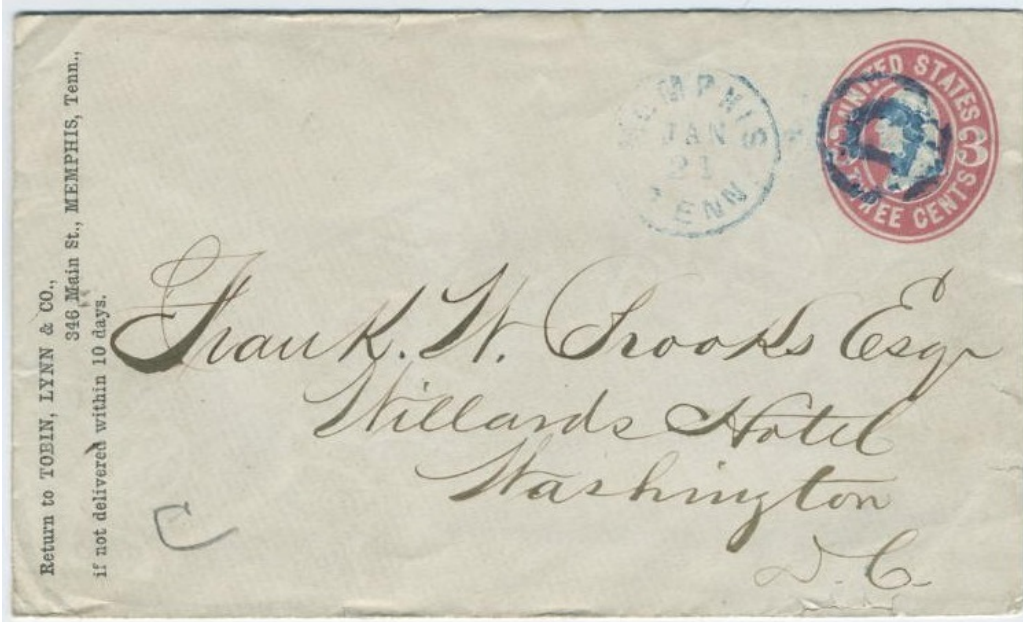 Return to TOBIN, LYNN & CO.,
346 Main St., MEMPHIS, Tenn.,
if not delivered within 10 days.
MEMPHIS
JAN
21
TENN.
UNITED STATES
3 3
THREE CENTS
Frank. W. Crooks Esqr
Willards Hotel
Washington
D. C.
C